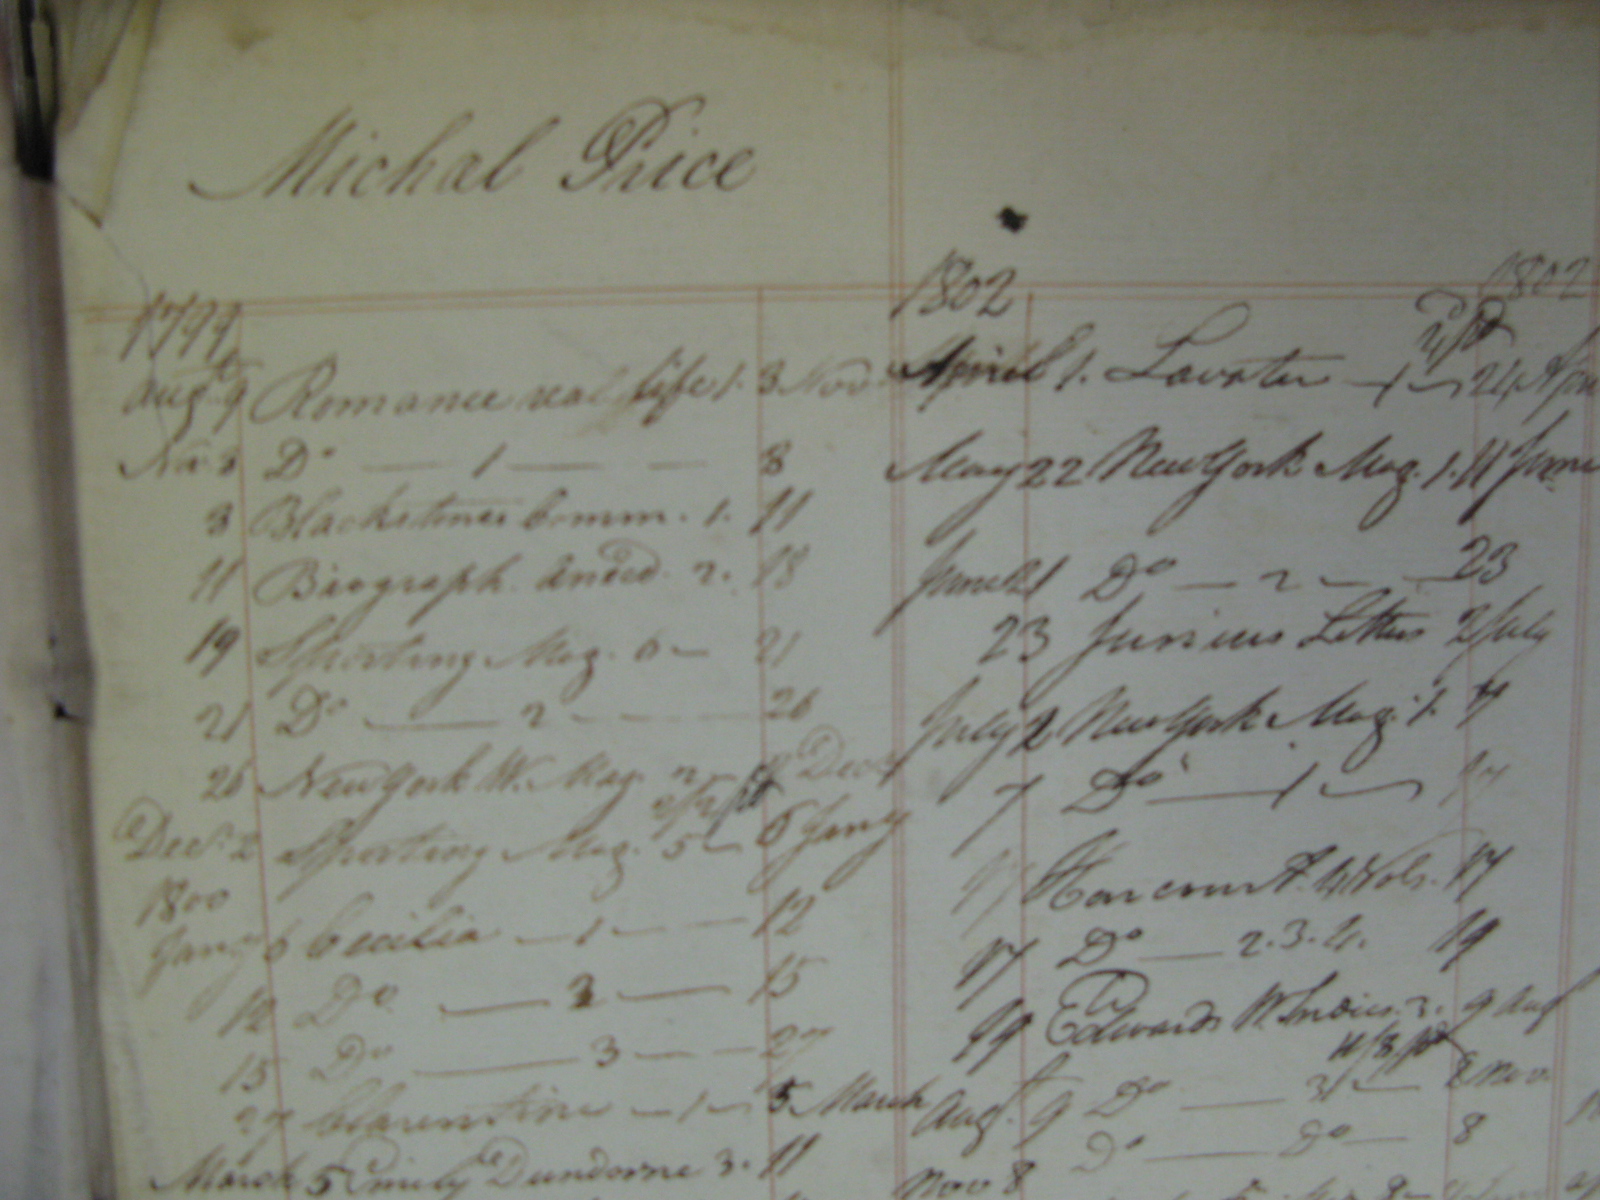 Michal Price
1799
Augt 9 Romance real life 1. 3 Nov
Nov 3 Do — 1 — — 8
3 Blackstones Comm. 1. 11
11 Biograph. Anecd. 2. 18
19 Sporting Mag. 6 — 21
21 Do — 2 — 26
26 New York W. Mag. 2 Decr
2/2 pd
Decr. 2 Sporting Mag. 5 — 6 Jany
1800
Jany 6 Cecilia — 1 — 12
12 Do — 2 — 15
15 Do — 3 — 27
27 Clarentine — 1 — 5 March
March 5 Emily Dundorne 3. 11
1802 1802
pd
April 1. Lavater — 1 — 24 April
May 22 New York Mag. 1. 11 June
June 21 Do — 2 — 23
23 Junius Letters 2 July
July 2 New York Mag. 1. 7
7 Do — 1 — 17
17 Harcourt. 4 Vols. 17
17 Do — 2. 3. 4. 19
19 Edwards W. Indies. 3. 9 Aug
4/8 pd
Aug. 9 Do — 3 — 8 Nov.
Nov 8 Do — Do — 8